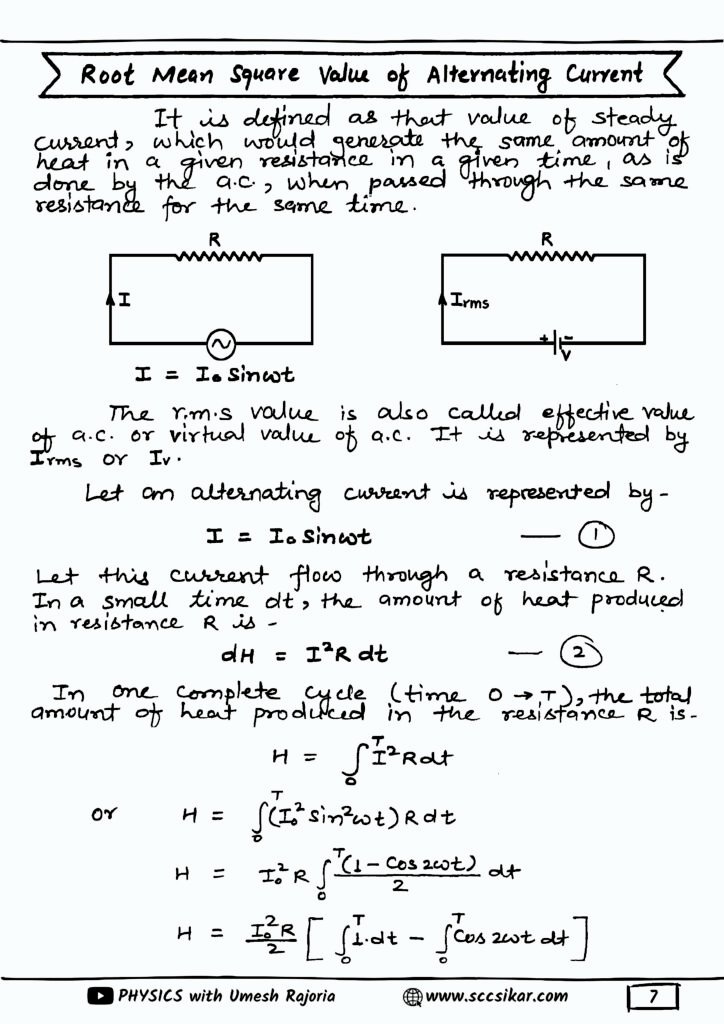 Root Mean Square Value of Alternating Current
It is defined as that value of steady
current, which would generate the same amount of
heat in a given resistance in a given time, as is
done by the a.c., when passed through the same
resistance for the same time.
R
I
I = I₀ Sinωt
R
Irms
+ -
V
The r.m.s value is also called effective value
of a.c. or virtual value of a.c. It is represented by
Irms or Iv.
Let an alternating current is represented by -
I = I₀ Sinωt — ①
Let this current flow through a resistance R.
In a small time dt, the amount of heat produced
in resistance R is -
dH = I²R dt — ②
In one complete cycle (time 0 → T), the total
amount of heat produced in the resistance R is -
H = ∫₀ᵀ I² R dt
or H = ∫₀ᵀ (I₀² sin²ωt) R dt
H = I₀² R ∫₀ᵀ (1 - Cos 2ωt)/2 dt
H = I₀² R/2 [ ∫₀ᵀ 1.dt - ∫₀ᵀ Cos 2ωt dt ]
PHYSICS with Umesh Rajoria www.sccsikar.com 7